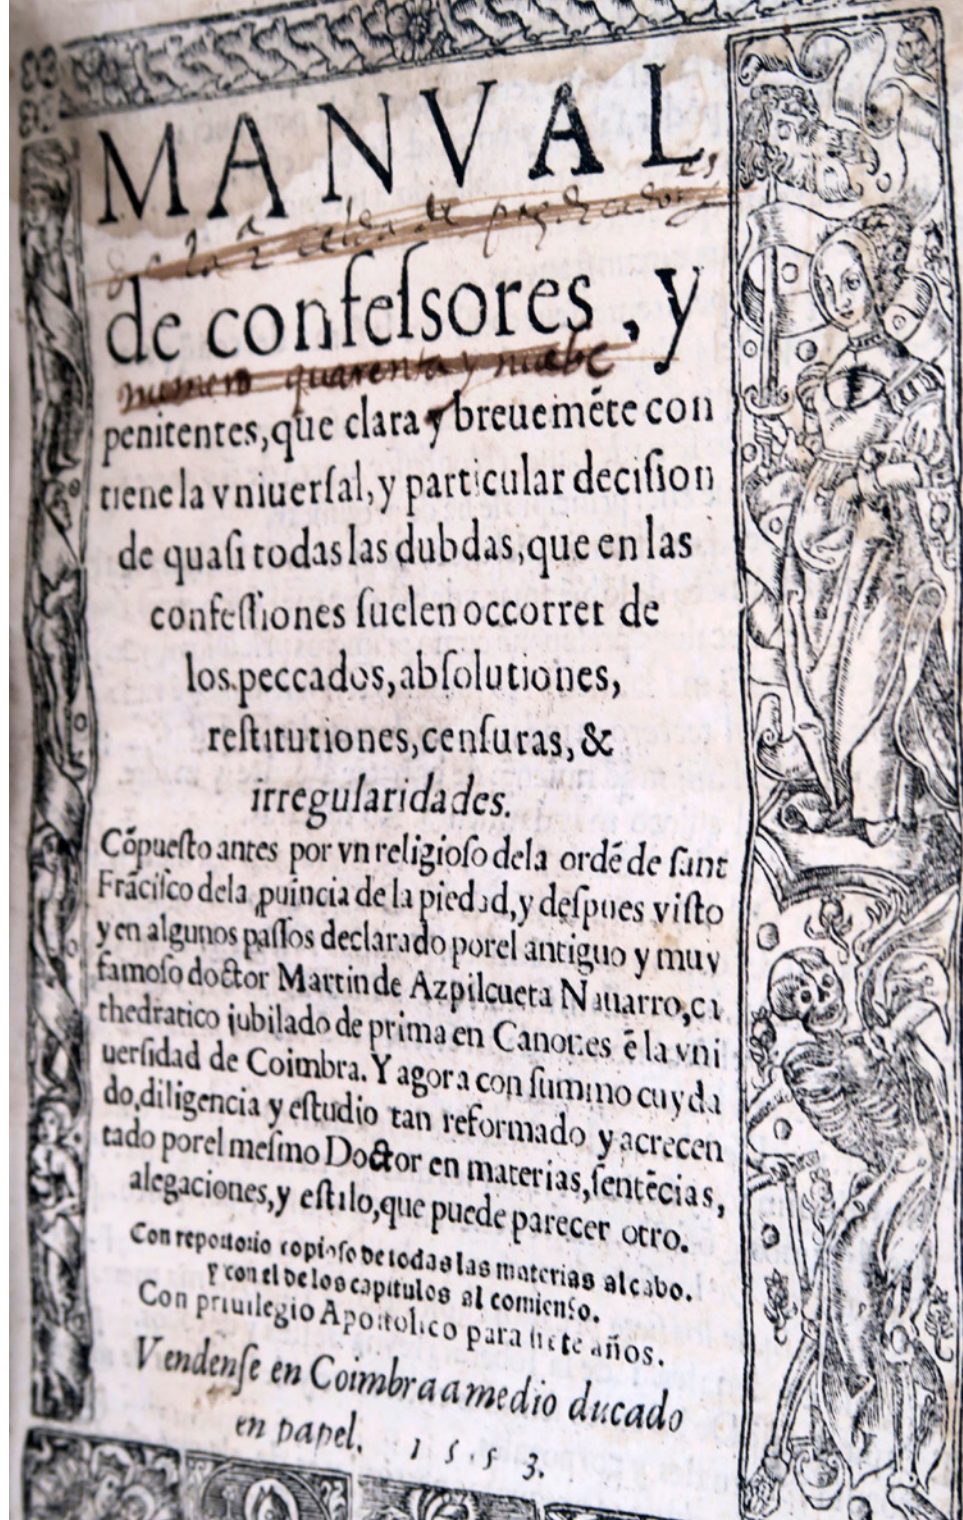 MANVAL
de predicadores
de confeſsores, y
numero quarenta y nuebe
penitentes, que clara y breuemẽte con
tiene la vniuerſal, y particular deciſion
de quaſi todas las dubdas, que en las
confeſſiones ſuelen occorrer de
los peccados, abſolutiones,
reſtitutiones, cenſuras, &
irregularidades.
Cõpueſto antes por vn religioſo dela ordẽ de ſant
Frãciſco dela ꝓuincia de la piedad, y deſpues viſto
y en algunos paſſos declarado porel antiguo y muy
famoſo doctor Martin de Azpilcueta Nauarro, ca
thedratico jubilado de prima en Canones ẽ la vni
uerſidad de Coimbra. Y agora con ſummo cuyda
do, diligencia y eſtudio tan reformado y acrecen
tado porel meſmo Doctor en materias, ſentẽcias,
alegaciones, y eſtilo, que puede parecer otro.
Con repottorio copioſo de todas las materias al cabo.
y con el de los capitulos al comienſo.
Con priuilegio Apoſtolico para ſiete años.
Vendenſe en Coimbra a medio ducado
en papel. 1553.